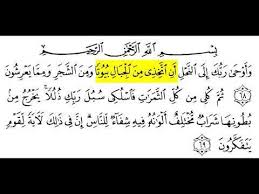 بِسْمِ اللَّهِ الرَّحْمَٰنِ الرَّحِيمِ
وَأَوْحَىٰ رَبُّكَ إِلَى النَّحْلِ أَنِ اتَّخِذِي مِنَ الْجِبَالِ بُيُوتًا وَمِنَ الشَّجَرِ وَمِمَّا يَعْرِشُونَ
٦٨ ثُمَّ كُلِي مِن كُلِّ الثَّمَرَاتِ فَاسْلُكِي سُبُلَ رَبِّكِ ذُلُلًا يَخْرُجُ مِن
بُطُونِهَا شَرَابٌ مُّخْتَلِفٌ أَلْوَانُهُ فِيهِ شِفَاءٌ لِّلنَّاسِ إِنَّ فِي ذَٰلِكَ لَآيَةً لِّقَوْمٍ
يَتَفَكَّرُونَ ٦٩